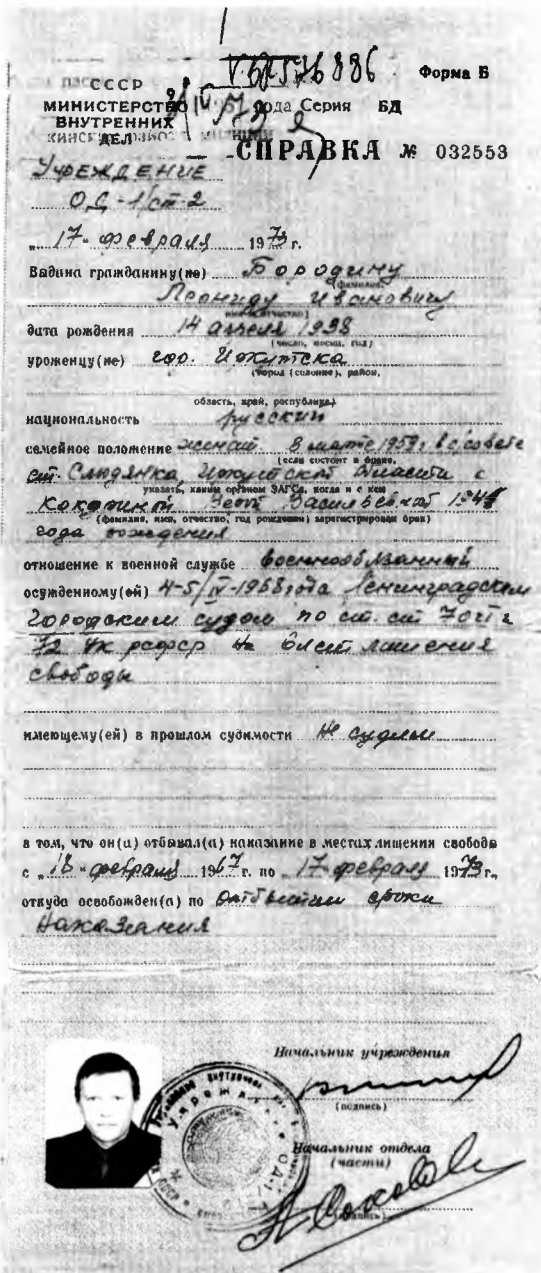 Форма Б
СССР
МИНИСТЕРСТВО
ВНУТРЕННИХ
ДЕЛ
года Серия БД
СПРАВКА № 032553
УЧРЕЖДЕНИЕ
ОД-1/ст-2
„17“ февраля 1973 г.
Выдана гражданину(не) Бородину
(фамилия,
Леониду Ивановичу
имя, отчество)
дата рождения 14 апреля 1938
(число, месяц, год)
уроженцу(не) гор. Иркутска
(город (селение), район,
область, край, республика)
национальность русский
семейное положение женат В марте 1959 г. в с/совете
(если состоит в браке,
ст. Слюдянка, Иркутской области с
указать, каким органом ЗАГСа, когда и с кем
Васильевной
(фамилия, имя, отчество, год рождения) зарегистрирован брак)
года рождения
отношение к военной службе военнообязанный
осужденному(ой) 4-5/IV-1968 года Ленинградским
Городским судом по ст. ст. 70 ч I и
72 УК РСФСР на 6 лет лишения
свободы
имеющему(ей) в прошлом судимости не судим
в том, что он(а) отбывал(а) наказание в местах лишения свободы
с „18“ февраля 1967 г. по „17“ февраля 1973 г.,
откуда освобожден(а) по отбытии срока
наказания
Начальник учреждения
(подпись)
Начальник отдела
(части)
(подпись)